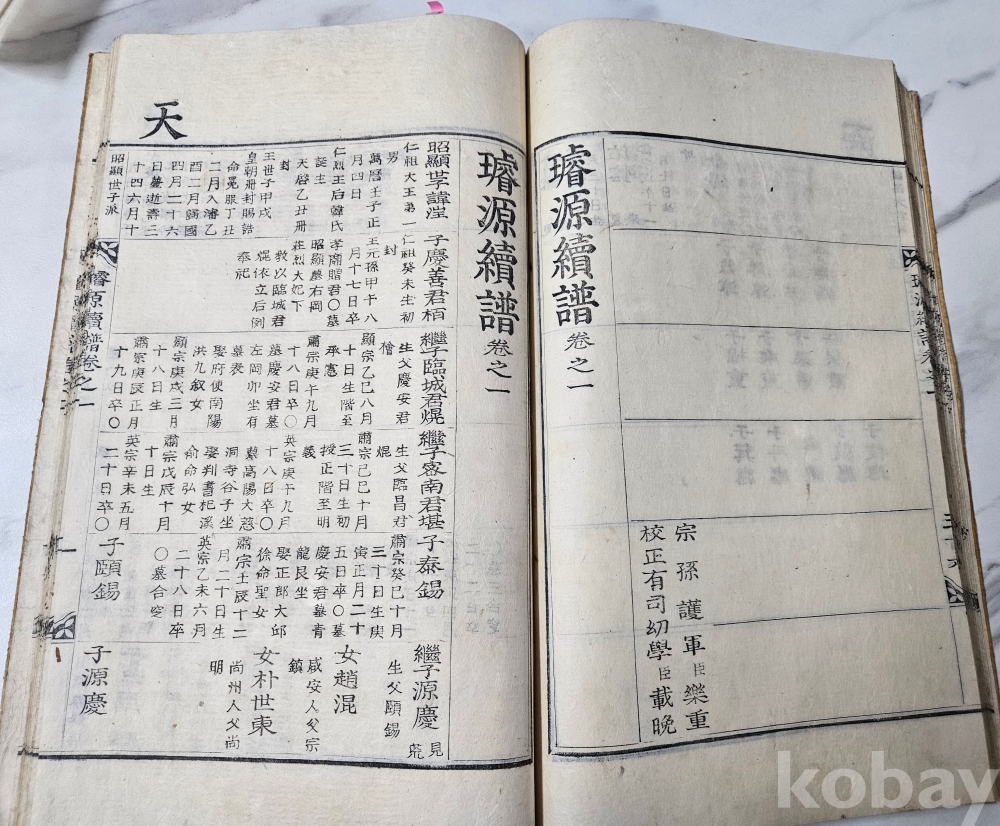 璿源續譜 卷之一
宗孫護軍臣樂重
校正有司幼學臣載晚
璿源續譜 卷之一
天
仁祖大王第一
男
萬曆壬子正
月四日
仁烈王后韓氏
誕生
天啓乙丑冊
封
王世子甲戌
皇朝冊封賜誥
命冕服丁丑
二月入瀋乙
酉二月歸國
四月二十六
日薨逝壽三
十四六月十
昭顯世子派
子慶善君栢
仁祖癸未生初
封
王元孫甲午八
月十七日卒
孝廟贈君〇墓
昭顯墓右岡
莊烈大妃下
敎以臨城君
焜依立后例
奉祀
繼子臨城君焜
生父慶安君
檜
顯宗乙巳八月
十日生階至
承憲
肅宗庚午九月
十八日卒〇
墓慶安君墓
左岡卯坐有
墓表
娶府使南陽
洪九敘女
顯宗庚戌三月
十八日生
肅宗庚辰正月
十九日卒〇
繼子密南君堪
生父臨昌君
焜
肅宗己巳十月
三十日生初
授正階至明
義
英宗庚午九月
十八日卒〇
墓高陽大慈
洞寺谷子坐
娶判書杞溪
俞命弘女
肅宗戊辰十月
十日生
英宗辛未五月
二十日卒〇
子泰錫
肅宗癸巳十月
三十日生庚
寅正月二十
五日卒〇墓
慶安君墓青
龍艮坐
娶正郎大邱
徐命聖女
肅宗壬辰十二
月二十日生
英宗乙未六月
二十八日卒
〇墓合窆
子頤錫
繼子源慶 見荒
生父頤錫
女趙混
咸安人父宗
鎮
女朴世東
尚州人父尚
明
子源慶
璿源續譜卷之一
kobay